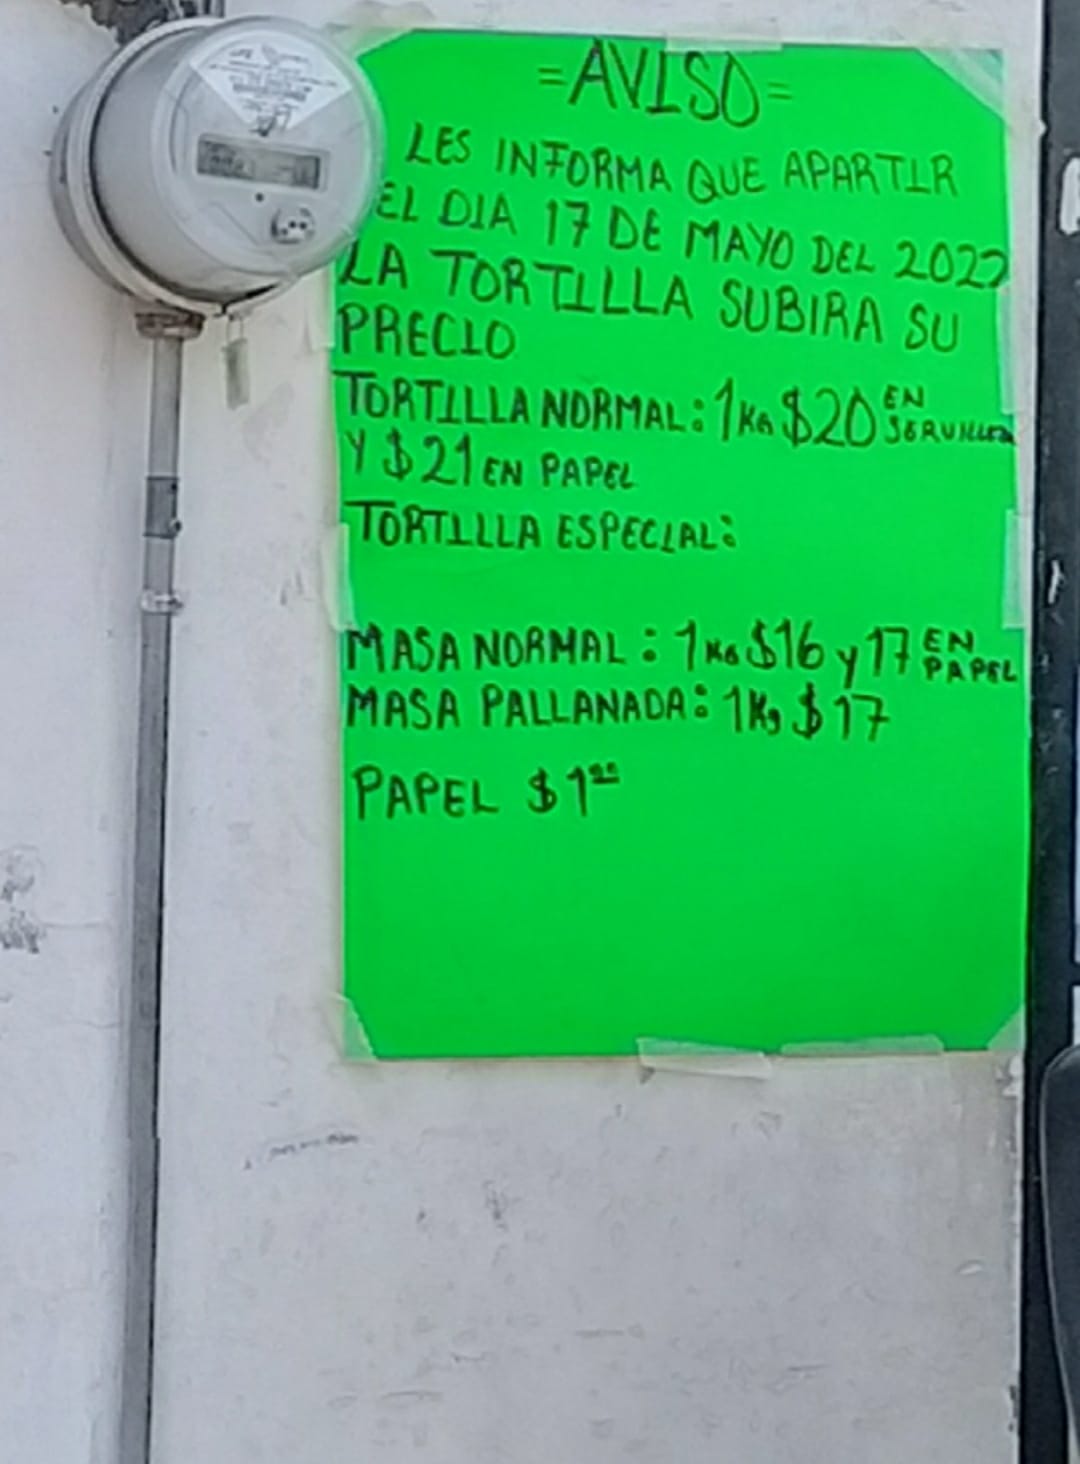 =AVISO=
LES INFORMA QUE APARTIR
EL DIA 17 DE MAYO DEL 2022
LA TORTILLA SUBIRA SU
PRECIO
TORTILLA NORMAL: 1KG $20 EN SERVILLETA
Y $21 EN PAPEL
TORTILLA ESPECIAL:
MASA NORMAL: 1KG $16 y 17 EN PAPEL
MASA PALLANADA: 1Kg $17
PAPEL $1ºº